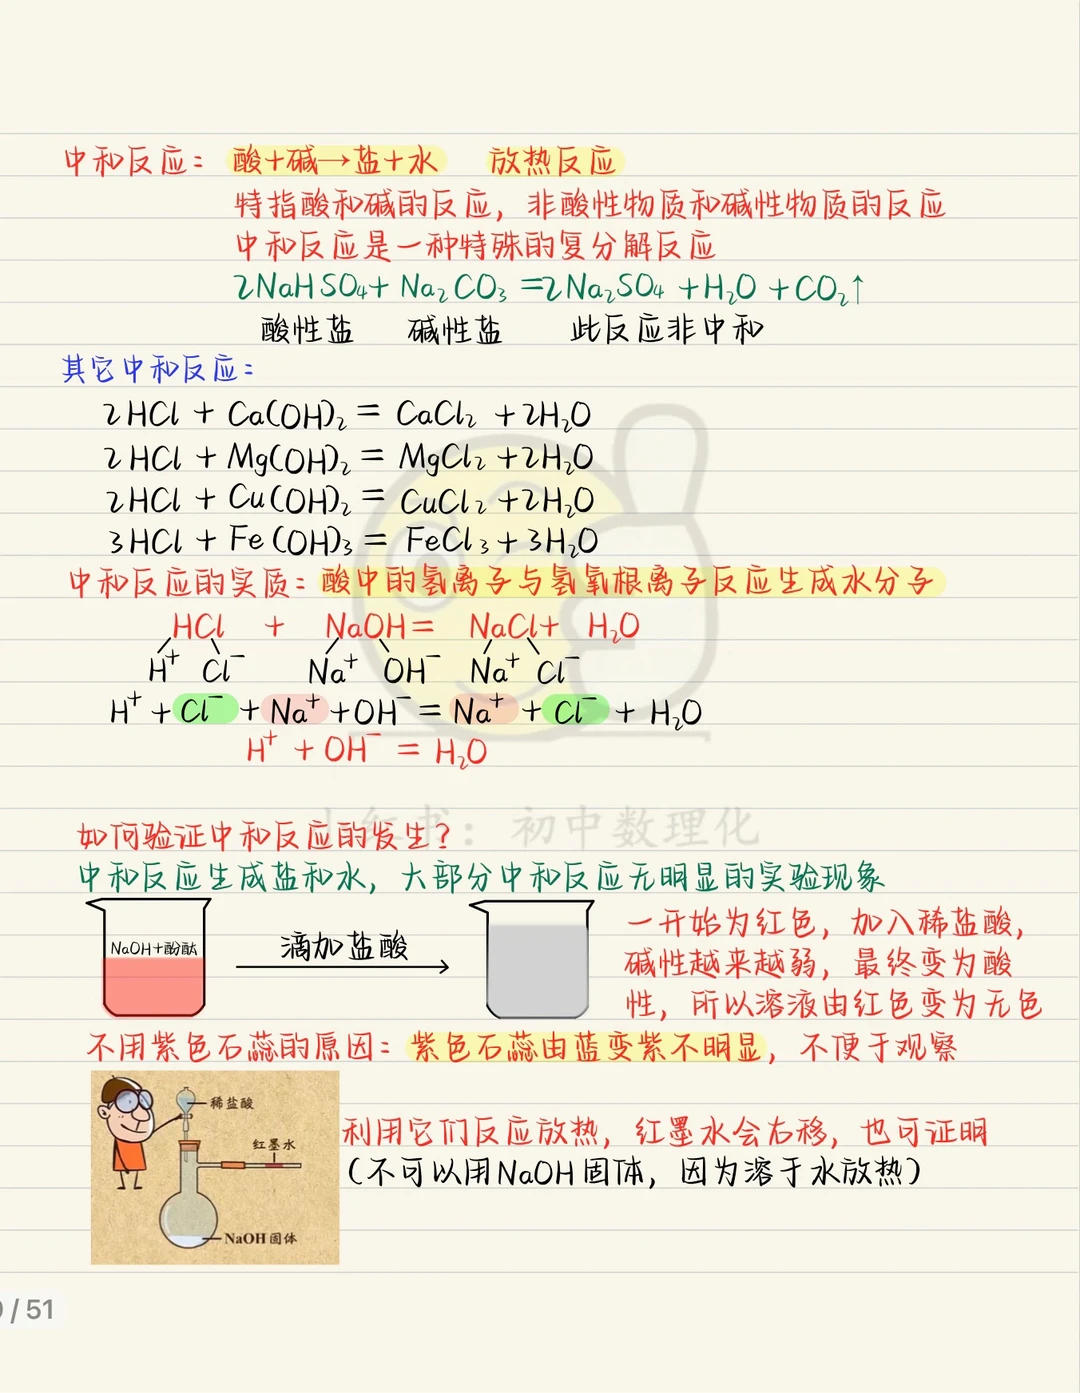 中和反应：酸+碱→盐+水 放热反应
特指酸和碱的反应，非酸性物质和碱性物质的反应
中和反应是一种特殊的复分解反应
2NaHSO₄+ Na₂CO₃ =2Na₂SO₄ +H₂O +CO₂↑
酸性盐 碱性盐 此反应非中和
其它中和反应：
2HCl + Ca(OH)₂ = CaCl₂ +2H₂O
2HCl + Mg(OH)₂ = MgCl₂ +2H₂O
2HCl + Cu(OH)₂ = CuCl₂ +2H₂O
3HCl + Fe(OH)₃ = FeCl₃ + 3H₂O
中和反应的实质：酸中的氢离子与氢氧根离子反应生成水分子
HCl + NaOH = NaCl + H₂O
H⁺ Cl⁻ Na⁺ OH⁻ Na⁺ Cl⁻
H⁺ + Cl⁻ + Na⁺ + OH⁻ = Na⁺ + Cl⁻ + H₂O
H⁺ + OH⁻ = H₂O
小红书：初中数理化
如何验证中和反应的发生？
中和反应生成盐和水，大部分中和反应无明显的实验现象
NaOH+酚酞
滴加盐酸
一开始为红色，加入稀盐酸，
碱性越来越弱，最终变为酸
性，所以溶液由红色变为无色
不用紫色石蕊的原因：紫色石蕊由蓝变紫不明显，不便于观察
稀盐酸
红墨水
NaOH固体
利用它们反应放热，红墨水会右移，也可证明
（不可以用NaOH固体，因为溶于水放热）
/ 51